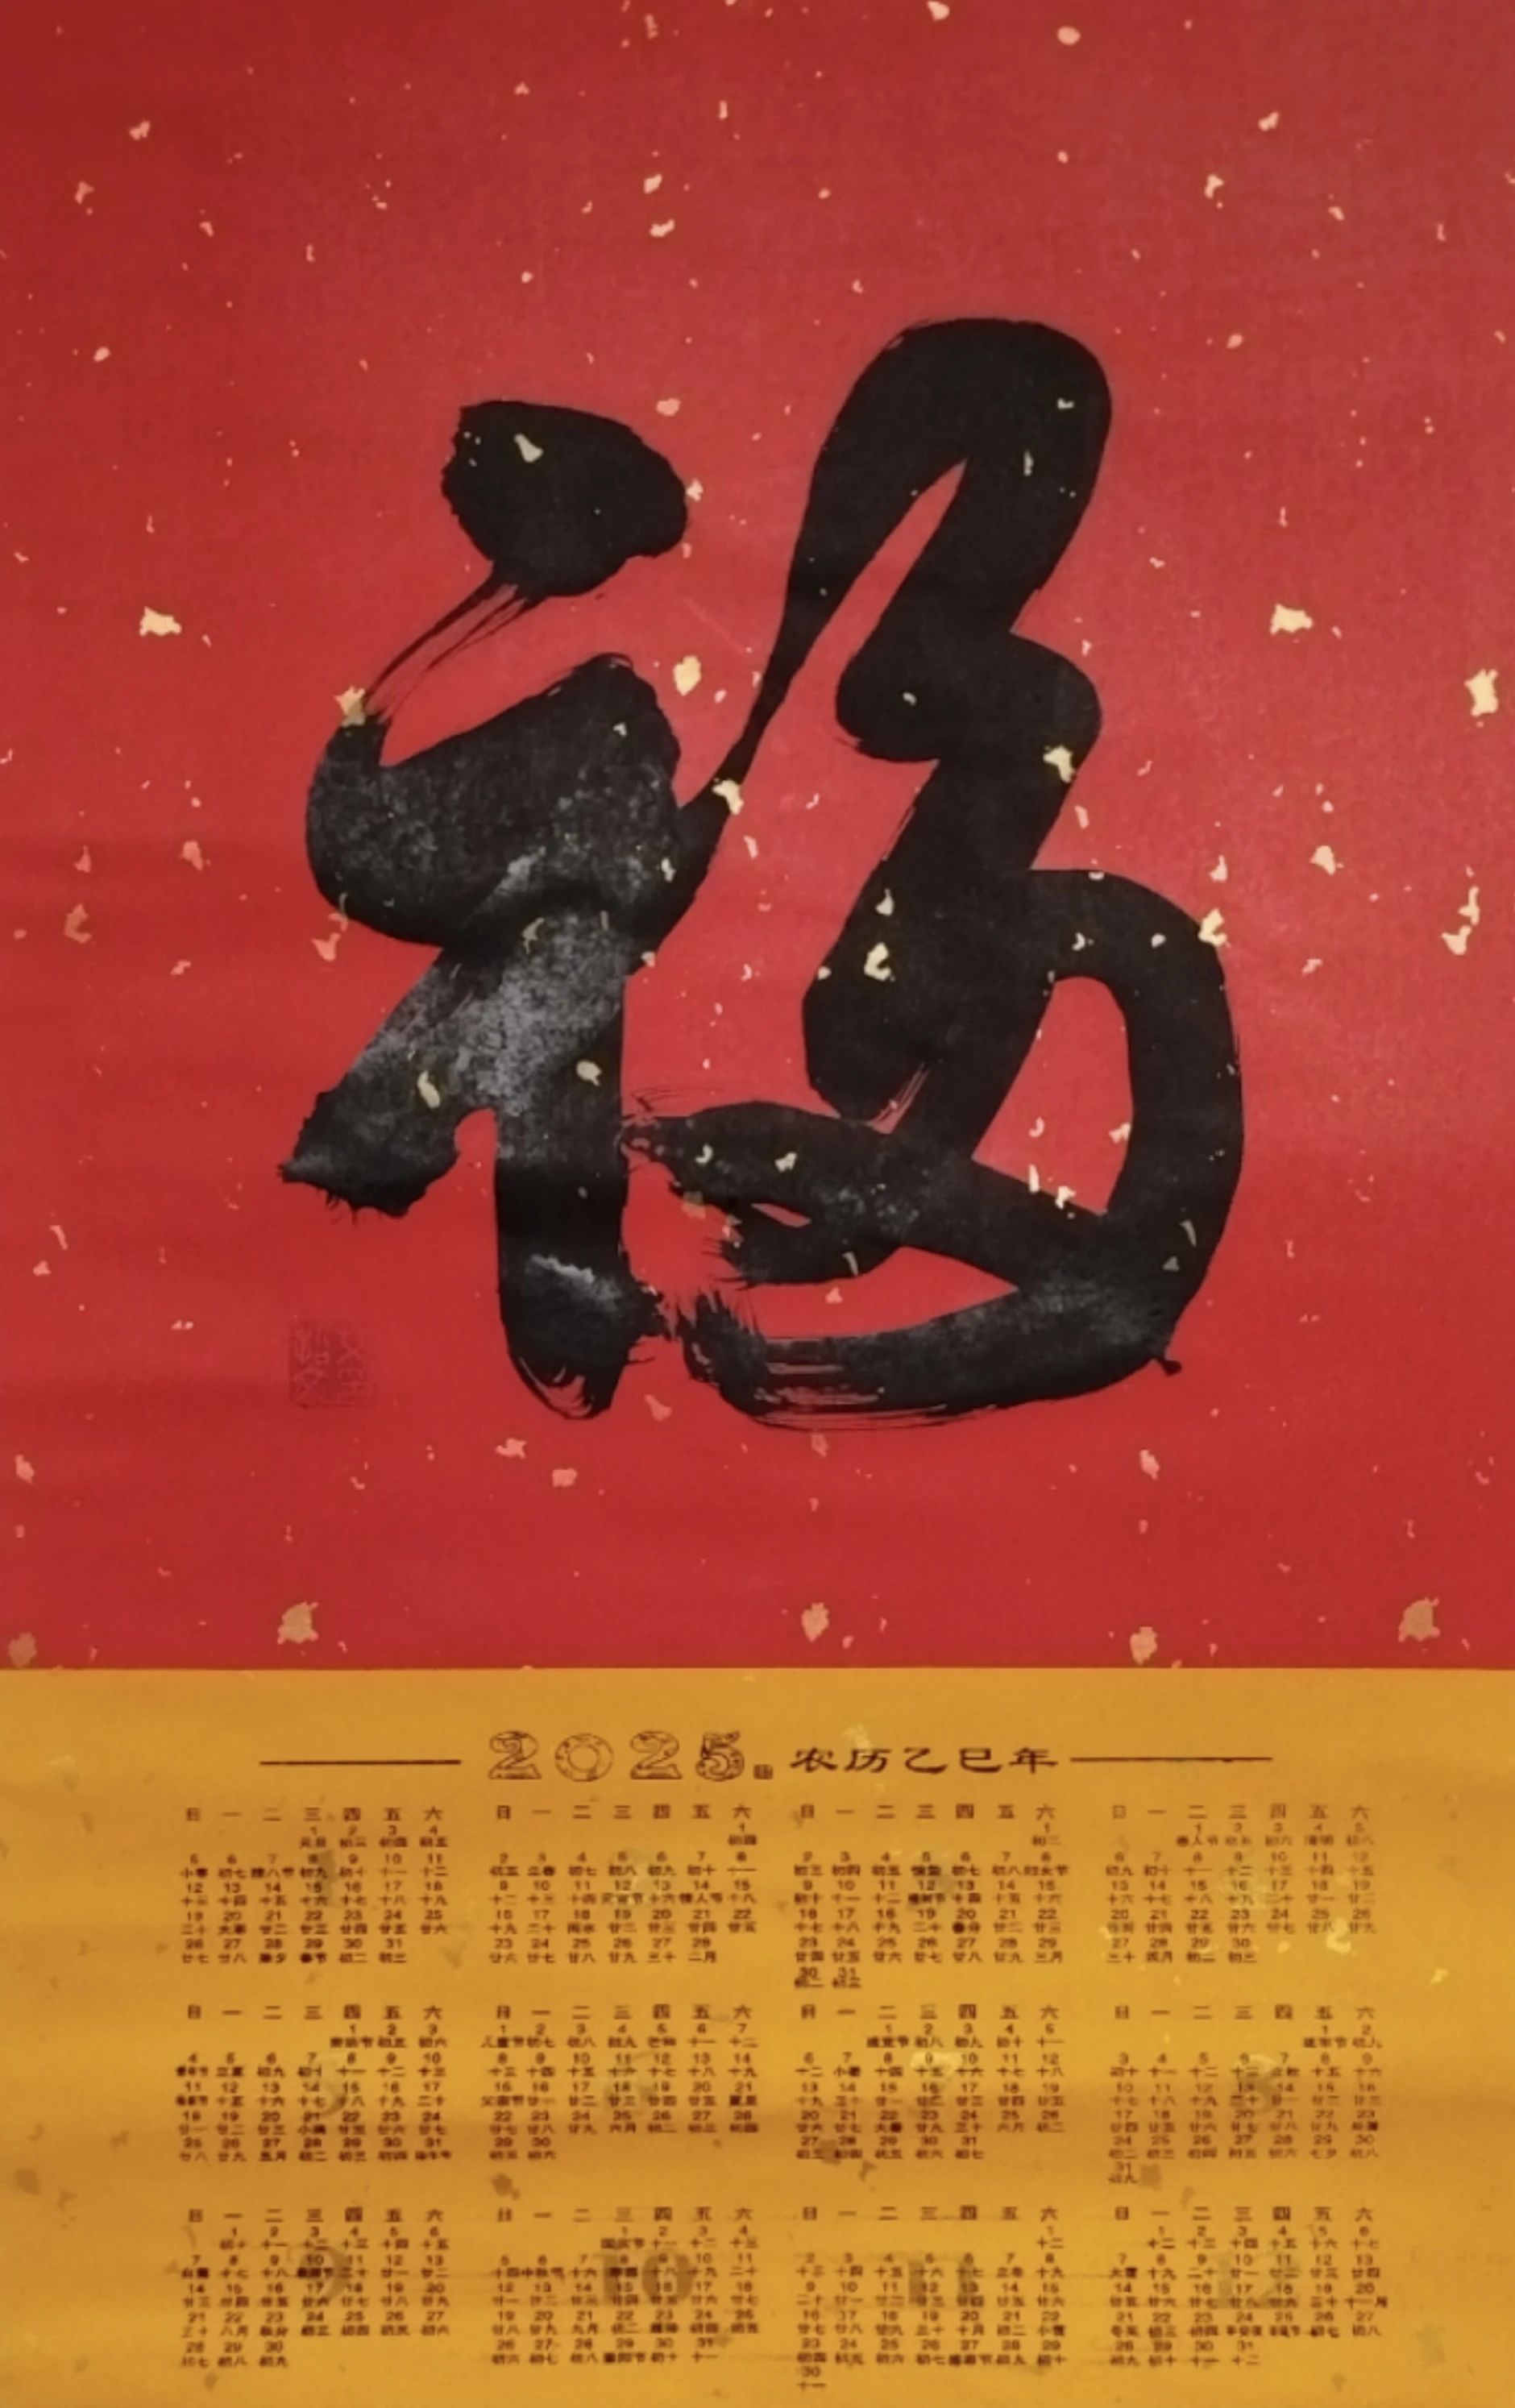 福
2025 农历乙巳年
日 一 二 三 四 五 六
1 2 3 4
元旦 初三 初四 初五
5 6 7 8 9 10 11
小寒 初七 腊八节 初九 初十 十一 十二
12 13 14 15 16 17 18
十三 十四 十五 十六 十七 十八 十九
19 20 21 22 23 24 25
二十 大寒 廿二 廿三 廿四 廿五 廿六
26 27 28 29 30 31
廿七 廿八 除夕 春节 初二 初三
日 一 二 三 四 五 六
1
初四
2 3 4 5 6 7 8
初五 立春 初七 初八 初九 初十 十一
9 10 11 12 13 14 15
十二 十三 十四 元宵节 十六 情人节 十八
16 17 18 19 20 21 22
十九 二十 雨水 廿二 廿三 廿四 廿五
23 24 25 26 27 28
廿六 廿七 廿八 廿九 三十 二月
日 一 二 三 四 五 六
1
初二
2 3 4 5 6 7 8
初三 初四 初五 惊蛰 初七 初八 妇女节
9 10 11 12 13 14 15
初十 十一 十二 植树节 十四 十五 十六
16 17 18 19 20 21 22
十七 十八 十九 二十 春分 廿二 廿三
23 24 25 26 27 28 29
廿四 廿五 廿六 廿七 廿八 廿九 三月
30 31
初二 初三
日 一 二 三 四 五 六
1 2 3 4 5
愚人节 初五 初六 清明 初八
6 7 8 9 10 11 12
初九 初十 十一 十二 十三 十四 十五
13 14 15 16 17 18 19
十六 十七 十八 十九 二十 廿一 廿二
20 21 22 23 24 25 26
廿四 廿五 廿六 廿七 廿八 廿九
27 28 29 30
三十 四月 初二 初三
日 一 二 三 四 五 六
1 2 3
劳动节 初五 初六
4 5 6 7 8 9 10
青年节 立夏 初九 初十 十一 十二 十三
11 12 13 14 15 16 17
母亲节 十五 十六 十七 十八 十九 二十
18 19 20 21 22 23 24
廿一 廿二 廿三 小满 廿五 廿六 廿七
25 26 27 28 29 30 31
廿八 廿九 五月 初二 初三 初四 端午节
日 一 二 三 四 五 六
1 2 3 4 5 6 7
儿童节 初七 初八 初九 芒种 十一 十二
8 9 10 11 12 13 14
十三 十四 十五 十六 十七 十八 十九
15 16 17 18 19 20 21
父亲节 廿一 廿二 廿三 廿四 廿五 夏至
22 23 24 25 26 27 28
廿七 廿八 廿九 六月 初二 初三 初四
29 30
初五 初六
日 一 二 三 四 五 六
1 2 3 4 5
建党节 初八 初九 初十 十一
6 7 8 9 10 11 12
十二 小暑 十四 十五 十六 十七 十八
13 14 15 16 17 18 19
十九 二十 廿一 廿二 廿三 廿四 廿五
20 21 22 23 24 25 26
廿六 廿七 大暑 廿九 三十 六月 初二
27 28 29 30 31
初三 初四 初五 初六 初七
日 一 二 三 四 五 六
1 2
建军节 初九
3 4 5 6 7 8 9
初十 十一 十二 十三 立秋 十五 十六
10 11 12 13 14 15 16
十七 十八 十九 二十 廿一 廿二 廿三
17 18 19 20 21 22 23
廿四 廿五 廿六 廿七 廿八 廿九 处暑
24 25 26 27 28 29 30
初二 初三 初四 初五 初六 七夕 初八
31
初九
日 一 二 三 四 五 六
1 2 3 4 5 6
初十 十一 十二 十三 十四 十五
7 8 9 10 11 12 13
白露 十七 十八 教师节 二十 廿一 廿二
14 15 16 17 18 19 20
廿三 廿四 廿五 廿六 廿七 廿八 廿九
21 22 23 24 25 26 27
三十 八月 秋分 初三 初四 初五 初六
28 29 30
初七 初八 初九
日 一 二 三 四 五 六
1 2 3 4
国庆节 十一 十二 十三
5 6 7 8 9 10 11
十四 中秋节 十六 寒露 十八 十九 二十
12 13 14 15 16 17 18
廿一 廿二 廿三 廿四 廿五 廿六 廿七
19 20 21 22 23 24 25
廿八 廿九 九月 初二 霜降 初四 初五
26 27 28 29 30 31
初六 初七 初八 重阳节 初十 十一
日 一 二 三 四 五 六
1
十二
2 3 4 5 6 7 8
十三 十四 十五 十六 十七 立冬 十九
9 10 11 12 13 14 15
二十 廿一 廿二 廿三 廿四 廿五 廿六
16 17 18 19 20 21 22
廿七 廿八 廿九 三十 十月 初二 小雪
23 24 25 26 27 28 29
初四 初五 初六 初七 感恩节 初九 初十
30
十一
日 一 二 三 四 五 六
1 2 3 4 5 6
十二 十三 十四 十五 十六 十七
7 8 9 10 11 12 13
大雪 十九 二十 廿一 廿二 廿三 廿四
14 15 16 17 18 19 20
廿五 廿六 廿七 廿八 廿九 三十 十一月
21 22 23 24 25 26 27
冬至 初三 初四 平安夜 圣诞节 初七 初八
28 29 30 31
初九 初十 十一 十二